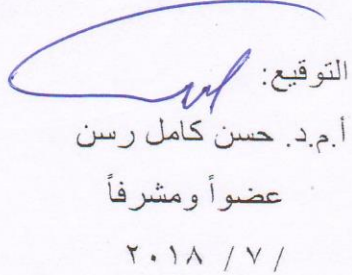 التوقيع:
أ.م.د. حسن كامل رسن
عضواً ومشرفاً
/ ٧ / ٢٠١٨